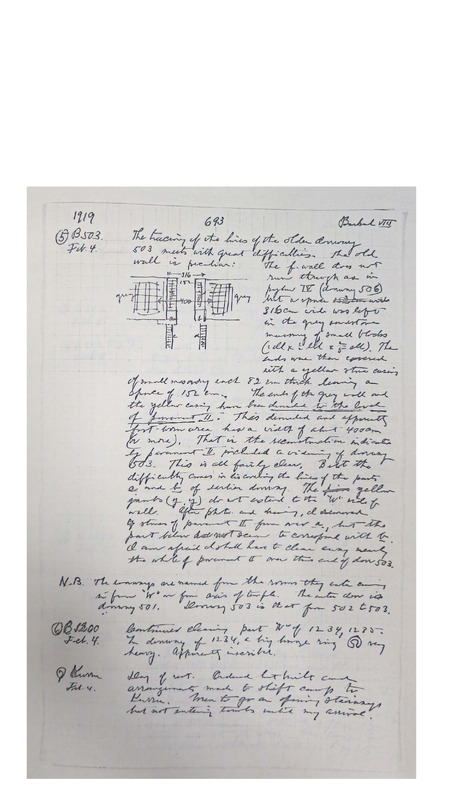 1919 693 Barkal VIII
(5) B503. The tracing of the lines of the older doorway
Feb. 4. 503 meets with great difficulties. The old
wall is peculiar: The f. wall does not
run through as in
pylon IV (doorway 506)
but a space wide
316 cm wide was left
in the grey sandstone
masonry of small blocks
The
ends were then covered
with a yellow stone casing
316
152
grey grey
400
of small masonry each 82 cm thick leaving an
space of 152 cm. The ends of the grey wall and
the yellow casing have been denuded to the level
of pavement II. This denuded and apparently
foot-worn area has a width of about 400 cm
(or more). That is the reconstruction indicated
by pavement II included a widening of doorway
503. This is all fairly clear. But the
difficulty comes in tracing the lines of the parts
a and b of earlier doorway. The yellow
jambs (y, y) do not extend to the "W" side of
wall. After photo. and drawing, I removed
of stones of pavement II from over a, but the
part below does not seem to correspond with b.
I am afraid I shall have to clear away nearly
the whole of pavement II over this end of door 503.
N.B. The doorways are named from the rooms they enter coming
in from "N" or from axis of temple. The outer door is
doorway 501. Doorway 503 is that from 502 to 503.
(6) B1200 Continued clearing part "N" of 1234, 1235.
Feb. 4. In doorway of 1234, a big bronze ring very
heavy. Apparently inscribed.
(7) Kurru Day of rest. Ordered hut built and
Feb. 4. arrangements made to shift camp to
Kurru. Men to go on opening stairways
but not entering tombs until my arrival.